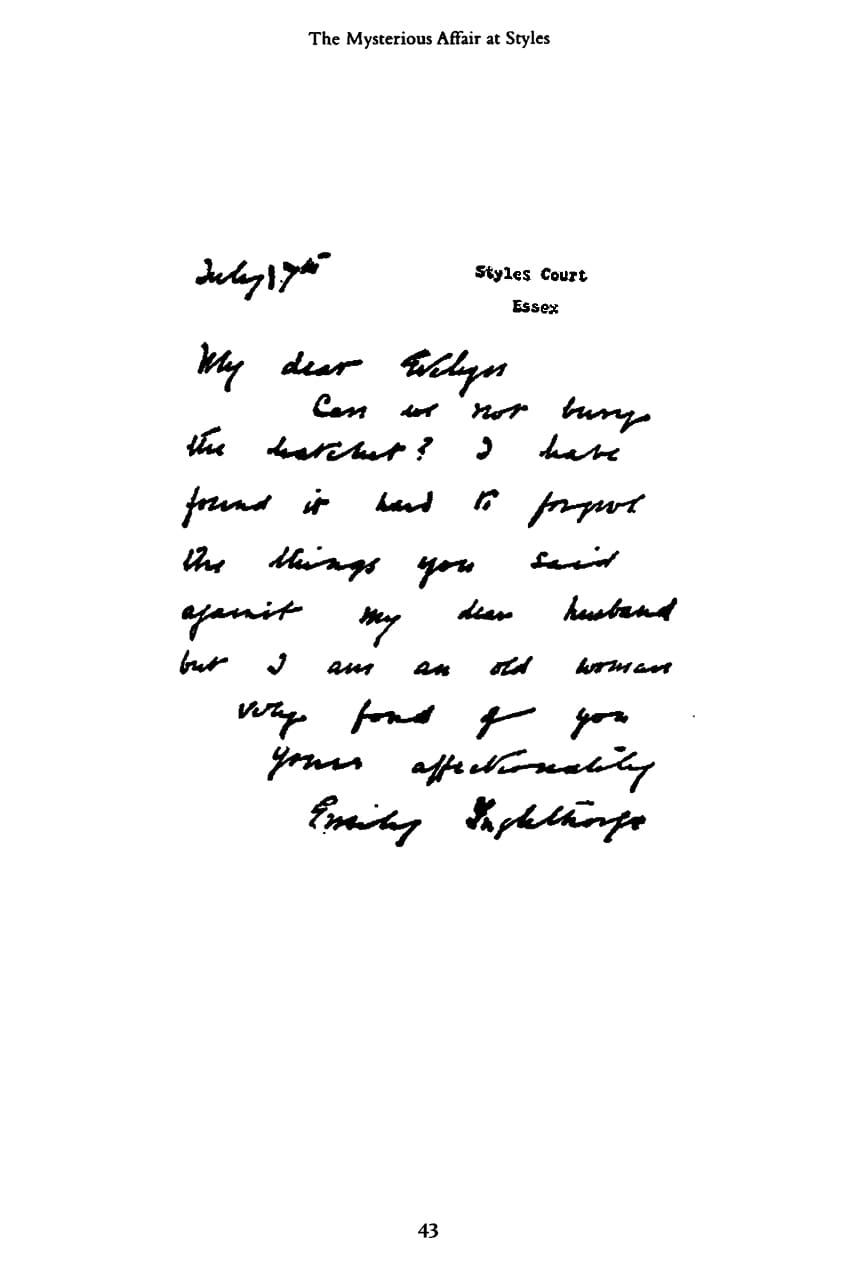 The Mysterious Affair at Styles
July 17th Styles Court
Essex
My dear Evelyn
Can we not bury
the hatchet? I have
found it hard to forgive
the things you said
against my dear husband
but I am an old woman
very fond of you
Yours affectionately
Emily Inglethorpe
43